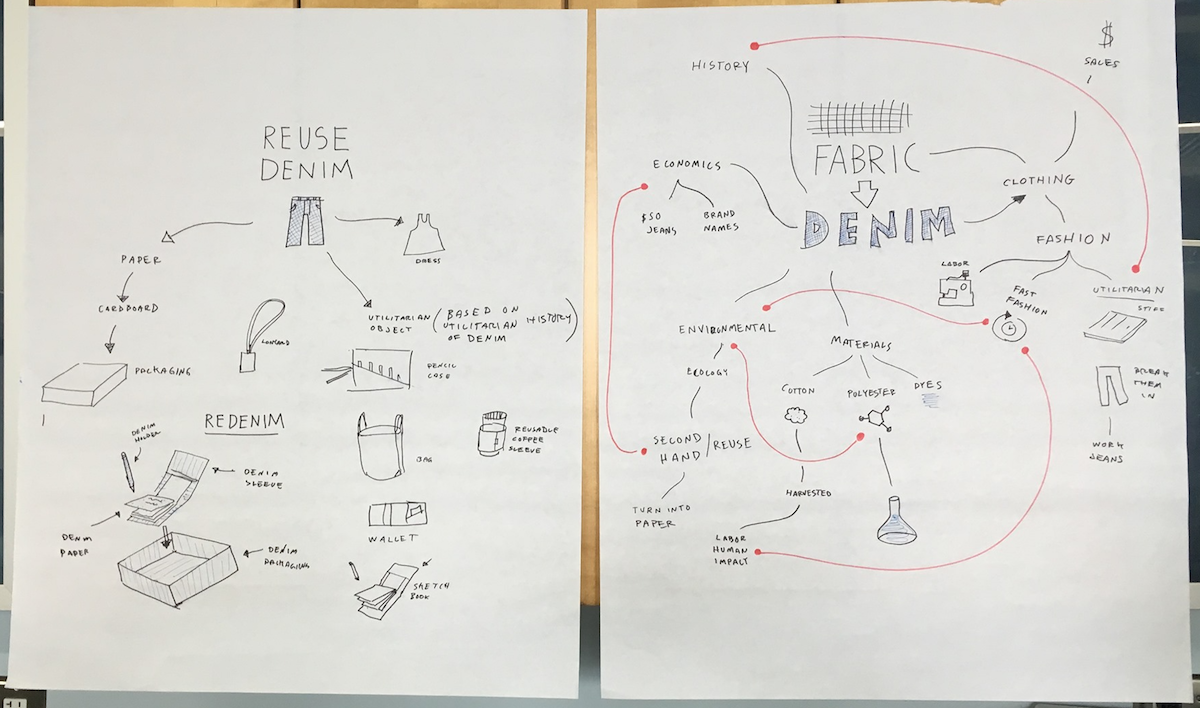 REUSE
DENIM
DRESS
PAPER
CARDBOARD
PACKAGING
UTILITARIAN
OBJECT
(BASED ON
UTILITARIAN HISTORY)
OF DENIM
LANYARD
PENCIL
CASE
REDENIM
DENIM
HOLDER
DENIM
SLEEVE
DENIM
PAPER
DENIM
PACKAGING
BAG
REUSABLE
COFFEE
SLEEVE
WALLET
SKETCH
BOOK
HISTORY
$
SALES
FABRIC
DENIM
ECONOMICS
$50
JEANS
BRAND
NAMES
CLOTHING
FASHION
LABOR
FAST
FASHION
UTILITARIAN
STIFF
BREAK
THEM
IN
WORK
JEANS
ENVIRONMENTAL
ECOLOGY
SECOND
HAND/REUSE
TURN INTO
PAPER
MATERIALS
COTTON
POLYESTER
DYES
HARVESTED
LABOR
HUMAN
IMPACT